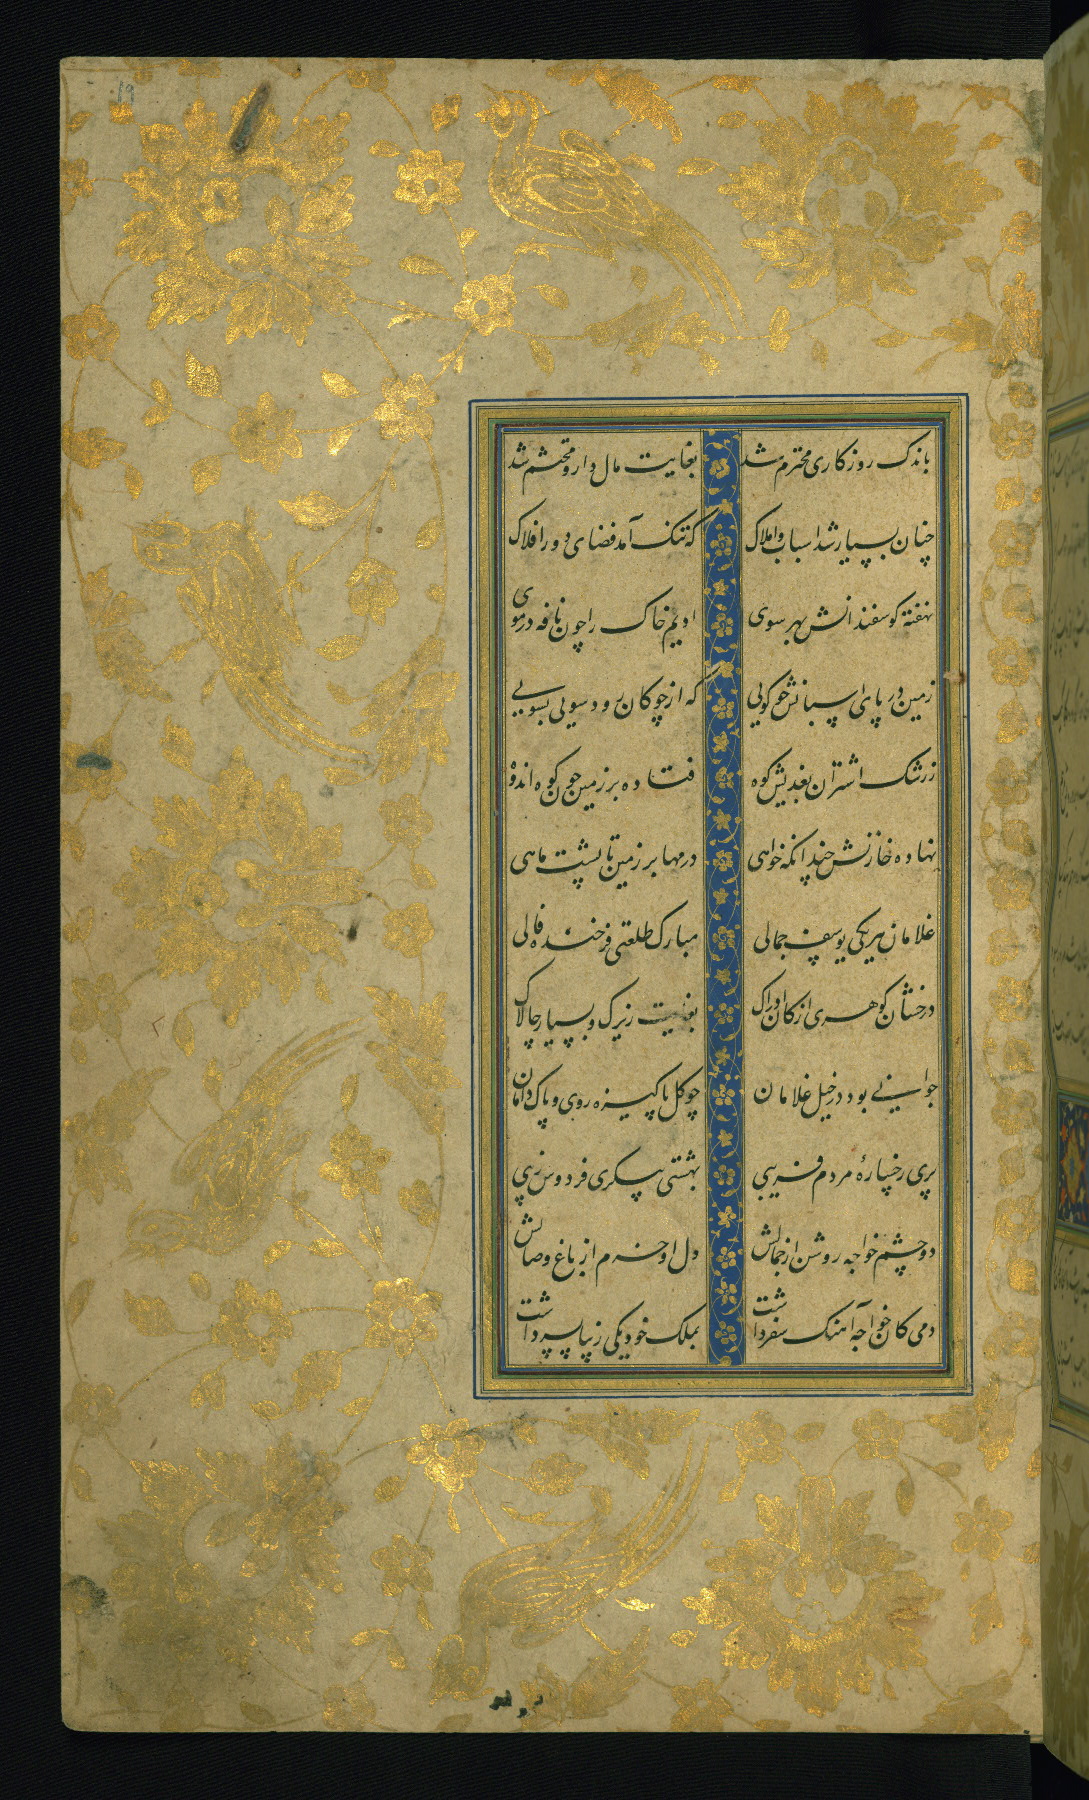 ۱۹
باندک روزکاری محترم شد بغایت مال دار و محتشم شد
چنان بسیار شد اسباب و املاک که تنک آمد فضای دور افلاک
نهفته کوسفندانش بهر سوی ادیم خاک را چون نافه در موی
زمین در پای اسبانش چو کویی که از چوکان رود سویی بسویی
ز رشک اشتران بغدیش کوه فتاده بر زمین چون کوه اندوه
نهاده خازنش چندانکه خواهی درمها بر زمین تا پشت ماهی
غلامان هریکی یوسف جمالی مبارک طلعتی فرخنده فالی
درخشان کوهری از کان ادراک بغایت زیرک و بسیار چالاک
جوانی بود در خیل غلامان چو کل پاکیزه روی و پاک دامان
پری رخسارهٔ مردم فریبی بهشتی پیکری فردوس زیبی
دو چشم خواجه روشن از جمالش دل او خرم از باغ وصالش
دمی کان خواجه آهنک سفر داشت بملک خود یکی زیبا پسر داشت